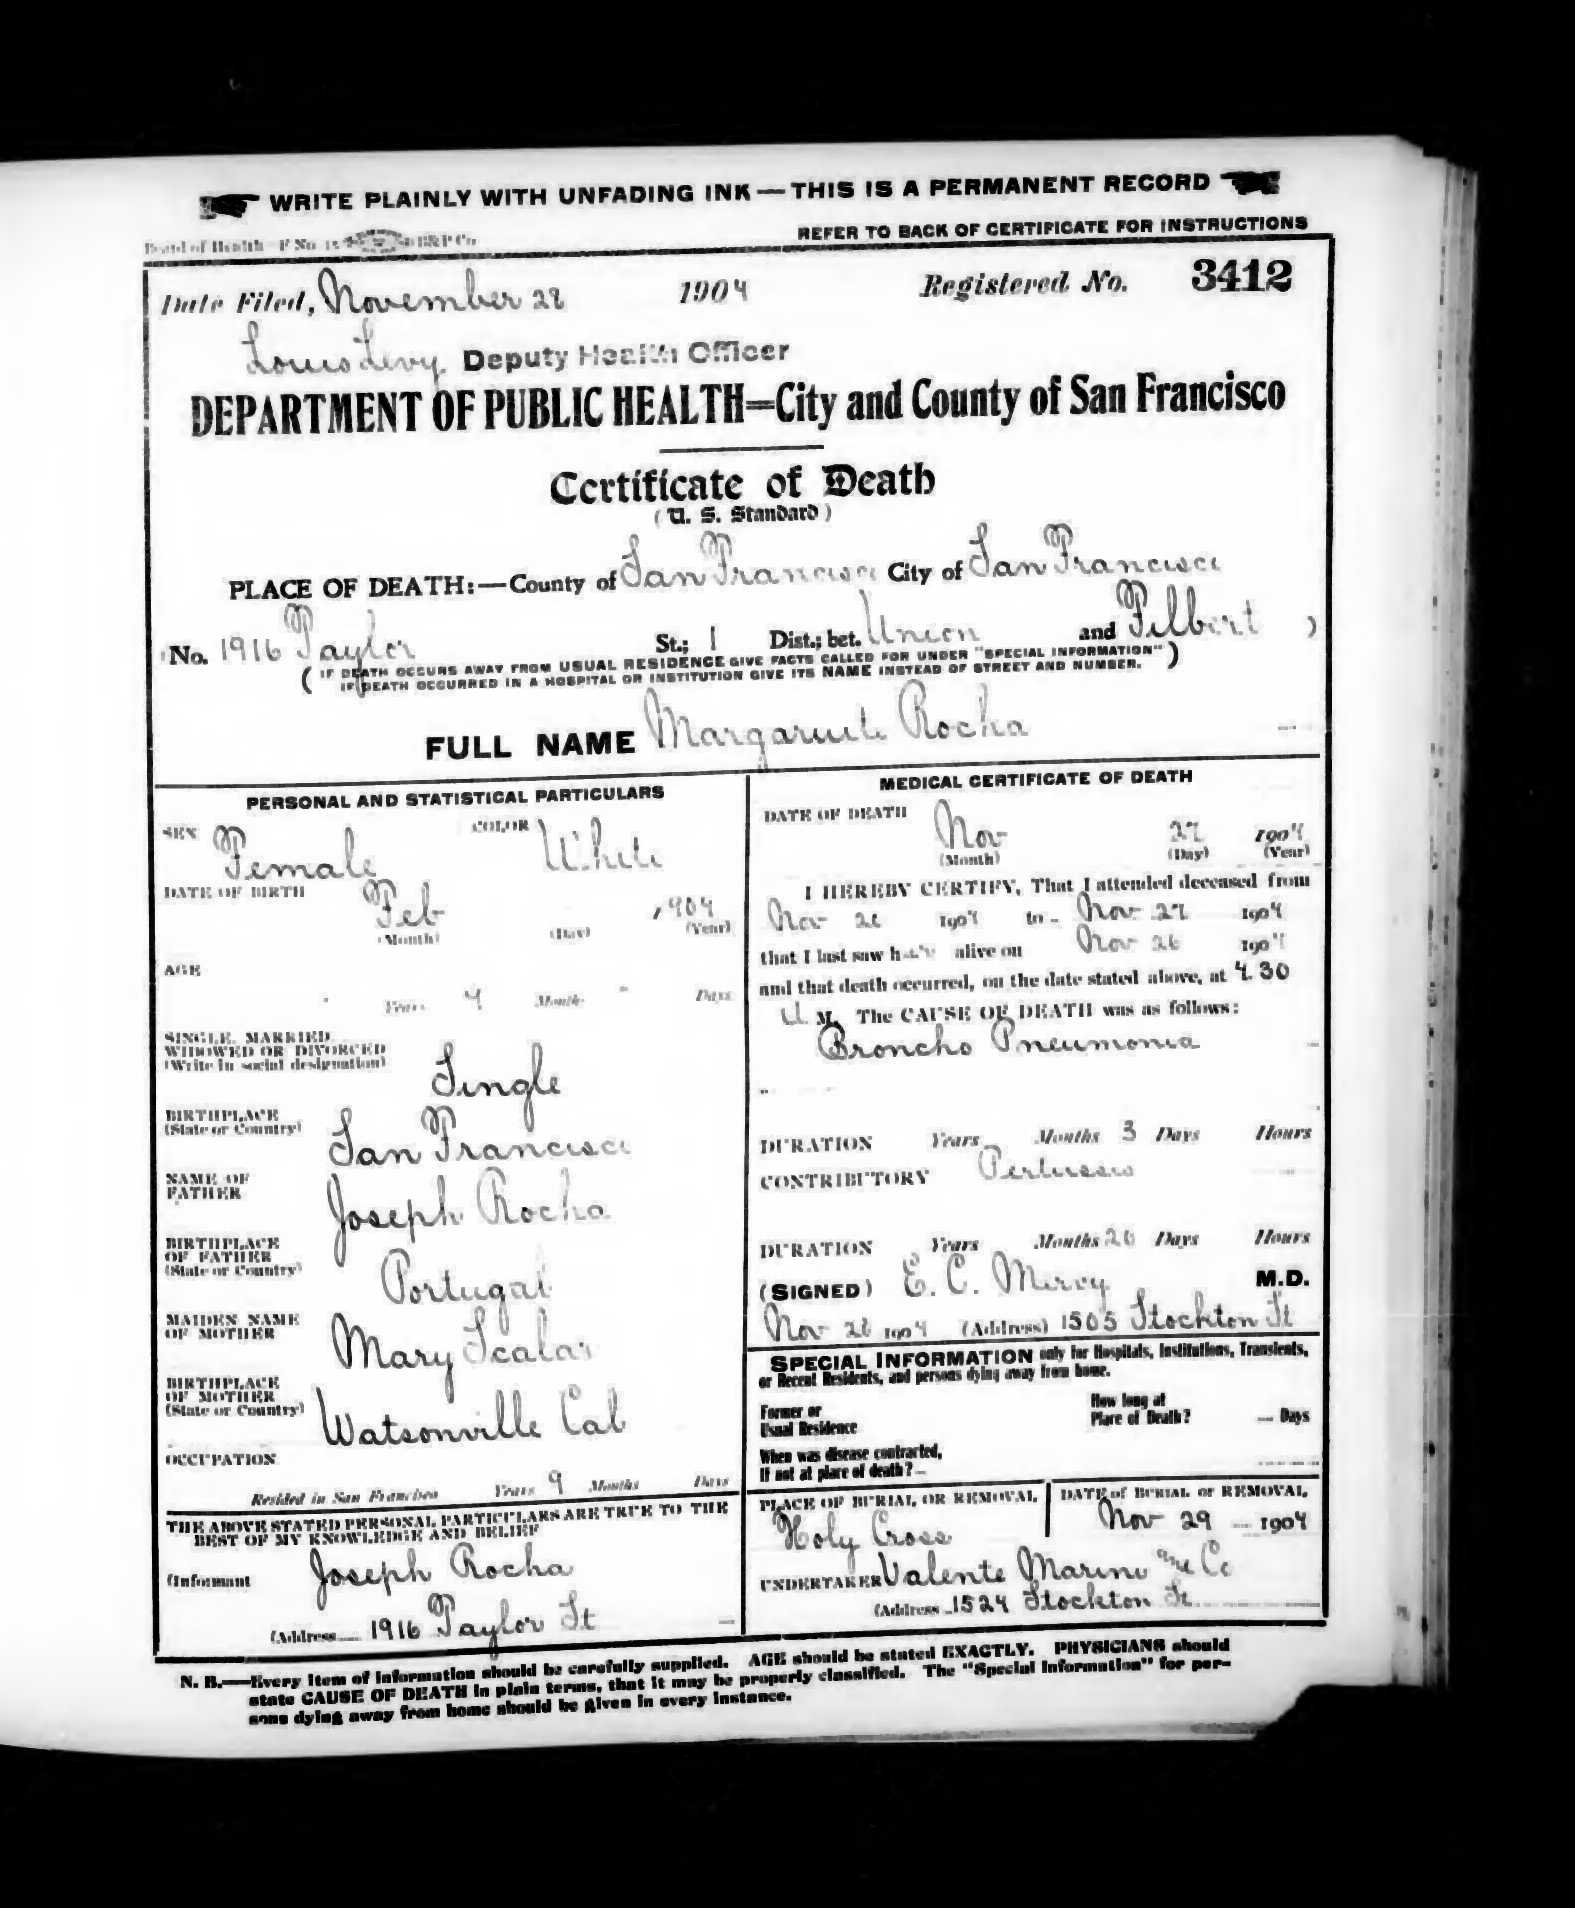 WRITE PLAINLY WITH UNFADING INK — THIS IS A PERMANENT RECORD
Board of Health—F No B&P Co REFER TO BACK OF CERTIFICATE FOR INSTRUCTIONS
Date Filed, November 28 1904 Registered No. 3412
Louis Levy. Deputy Health Officer
DEPARTMENT OF PUBLIC HEALTH=City and County of San Francisco
Certificate of Death
(U. S. Standard)
PLACE OF DEATH:—County of San Francisco City of San Francisco
No. 1916 Taylor St.; 1 Dist.; bet. Union and Filbert )
( IF DEATH OCCURS AWAY FROM USUAL RESIDENCE GIVE FACTS CALLED FOR UNDER "SPECIAL INFORMATION" )
IF DEATH OCCURRED IN A HOSPITAL OR INSTITUTION GIVE ITS NAME INSTEAD OF STREET AND NUMBER.
FULL NAME Rocha
PERSONAL AND STATISTICAL PARTICULARS
SEX Female COLOR White
DATE OF BIRTH Feb 1904
(Month) (Day) (Year)
AGE
Years 9 Months - Days
SINGLE, MARRIED
WIDOWED OR DIVORCED
(Write in social designation) Single
BIRTHPLACE
(State or Country) San Francisco
NAME OF
FATHER Joseph Rocha
BIRTHPLACE
OF FATHER
(State or Country) Portugal
MAIDEN NAME
OF MOTHER Mary Scalar
BIRTHPLACE
OF MOTHER
(State or Country) Watsonville Cal
OCCUPATION
Resided in San Francisco Years 9 Months Days
THE ABOVE STATED PERSONAL PARTICULARS ARE TRUE TO THE
BEST OF MY KNOWLEDGE AND BELIEF
(Informant Joseph Rocha
(Address 1916 Taylor St
MEDICAL CERTIFICATE OF DEATH
DATE OF DEATH Nov 27 1904
(Month) (Day) (Year)
I HEREBY CERTIFY, That I attended deceased from
Nov 1904 to Nov 27 1904
that I last saw her alive on Nov 26 1904
and that death occurred, on the date stated above, at 4.30
M. The CAUSE OF DEATH was as follows:
Broncho Pneumonia
DURATION Years Months 3 Days Hours
CONTRIBUTORY Pertussis
DURATION Years Months 20 Days Hours
(SIGNED) E. C. M.D.
Nov 28 1904 (Address) 1505 Stockton St
SPECIAL INFORMATION only for Hospitals, Institutions, Transients,
or Recent Residents, and persons dying away from home.
Former or
Usual Residence
How long at
Place of Death? Days
When was disease contracted,
If not at place of death?
PLACE OF BURIAL OR REMOVAL
Holy Cross
DATE of BURIAL or REMOVAL
Nov 29 1904
UNDERTAKER Valente Marini and Co
(Address 1524 Stockton St
N. B.—Every item of information should be carefully supplied. AGE should be stated EXACTLY. PHYSICIANS should
state CAUSE OF DEATH in plain terms, that it may be properly classified. The "Special Information" for per-
sons dying away from home should be given in every instance.